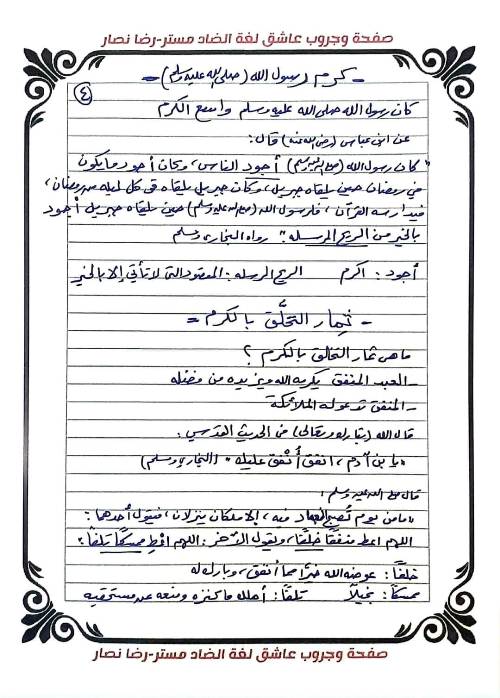 صفحة وجروب عاشق لغة الضاد مستر-رضا نصار
- كرم رسول الله (صلى الله عليه وسلم) -
٤
كان رسول الله صلى الله عليه وسلم واسع الكرم
عن ابن عباس (رضى الله عنه) قال:
"كان رسول الله (صلى الله عليه وسلم) أجود الناس، وكان أجود ما يكون
في رمضان حين يلقاه جبريل، وكان جبريل يلقاه فى كل ليلة من رمضان،
فيدارسه القرآن، فلرسول الله (صلى الله عليه وسلم) حين يلقاه جبريل أجود
بالخير من الريح المرسلة" رواه البخارى ومسلم
أجود: أكرم الريح المرسلة: التى لا تأتي إلا بالخير
- ثِمار التخلُّق بالكرم -
ما هى ثمار التخلق بالكرم ؟
- العبد المنفق يكرمه الله ويزيده من فضله
- المنفق تدعو له الملائكة
قال الله (تبارك وتعالى) فى الحديث القدسي:
"يا بن آدم، انفق أُنْفق عليك" (البخارى ومسلم)
قال صلى الله عليه وسلم:
"ما من يوم تُصبح العباد فيه، إلا ملكان ينزلان، فيقول أحدهما:
اللهم اعط منفقًا خلفًا، ويقول الآخر: اللهم اعْطِ ممسكًا تلفًا"
خلفًا: عوضه الله خيرًا مما أنفق، وبارك له
ممسكًا: بخيلاً تلفًا: أهلك ما كنزه ومنعه عن مستحقيه
صفحة وجروب عاشق لغة الضاد مستر-رضا نصار